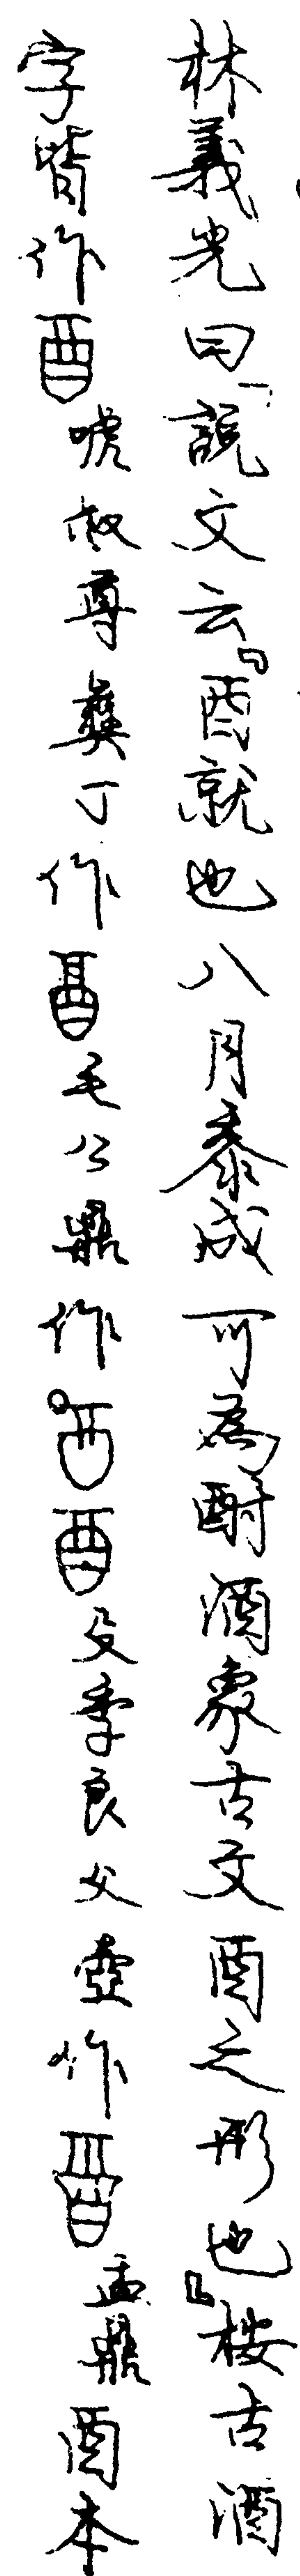 林義光曰「說文云『酉就也八月黍成可為酎酒象古文酉之形也』按古酒
字皆作唬叔尊彝丁作毛公鼎作殳季良父壺作盂鼎酉本